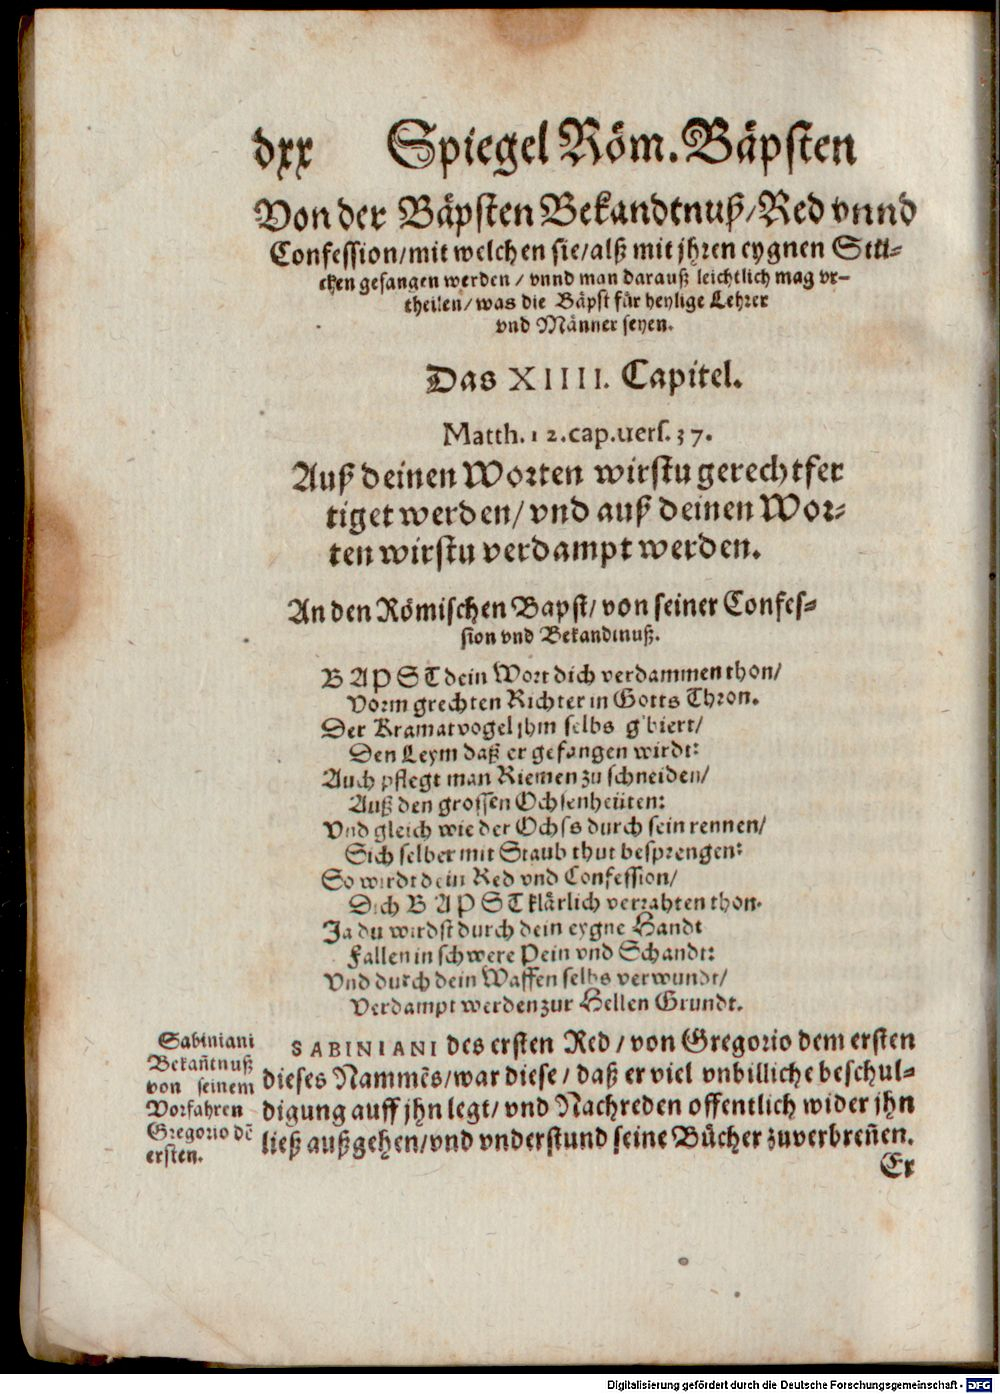 dxx Spiegel Röm. Bäpsten
Von der Bäpsten Bekandtnuß/Red vnnd
Confession/mit welchen sie/alß mit jhren eygnen Stri-
cken gefangen werden / vnnd man darauß leichtlich mag vr-
theilen/was die Bäpst für heylige Lehrer
vnd Männer seyen.
Das XIIII. Capitel.
Matth.12.cap.uers.37.
Auß deinen Worten wirstu gerechtfer
tiget werden/vnd auß deinen Wor-
ten wirstu verdampt werden.
An den Römischen Bapst/von seiner Confes-
sion vnd Bekandtnuß.
BAPST dein Wort dich verdammen thon/
Vorm grechten Richter in Gotts Thron.
Der Kramatvogel jhm selbs g'biert/
Den Leym daß er gefangen wirdt:
Auch pflegt man Riemen zu schneiden/
Auß den grossen Ochsenheüten:
Vnd gleich wie der Ochss durch sein rennen/
Sich selber mit Staub thut besprengen:
So wirdt dein Red vnd Confession/
Dich BAPST klärlich verrahten thon.
Ja du wirdst durch dein eygne Handt
Fallen in schwere Pein vnd Schandt:
Vnd durch dein Waffen selbs verwundt/
Verdampt werden zur Hellen Grundt.
Sabiniani
Bekañtnuß
von seinem
Vorfahren
Gregorio dē
ersten.
SABINIANI des ersten Red / von Gregorio dem ersten
dieses Nammēs/war diese / daß er viel vnbilliche beschul-
digung auff jhn legt/vnd Nachreden offentlich wider jhn
ließ außgehen/vnd vnderstund seine Bücher zuverbreñen.
Er
Digitalisierung gefördert durch die Deutsche Forschungsgemeinschaft - DFG